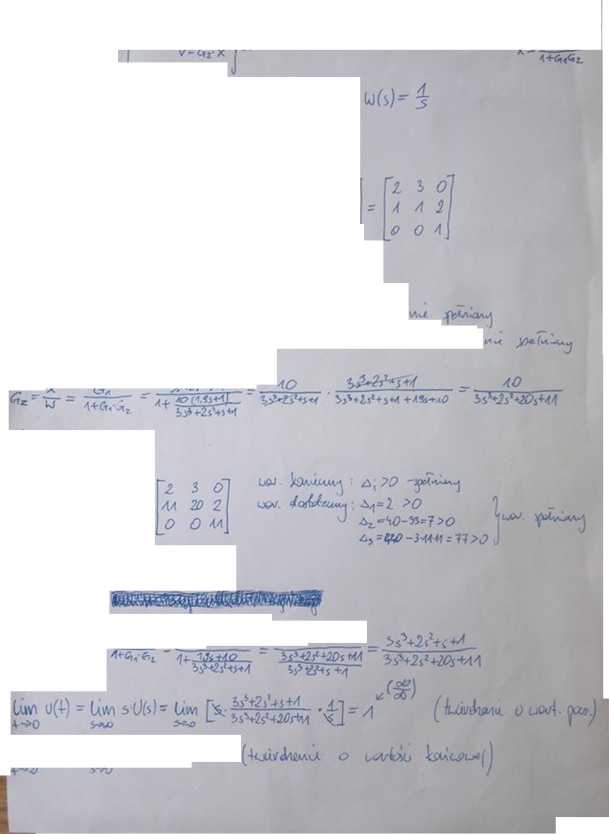 1+G₁G₂
W(s) = 1/s
= [2 3 0
1 1 2
0 0 1]
nie spełniony
nie spełniony
G_z = X/W = G₁/(1+G₁·G₂) = /(1+ 10(1,9s+1)/(3s³+2s²+s+1)) = 10/(3s³+2s²+s+1) · (3s³+2s²+s+1)/(3s³+2s²+s+1+19s+10) = 10/(3s³+2s²+20s+11)
[2 3 0
11 20 2
0 0 11]
war. konieczny: Δᵢ>0 - spełniony
war. dostateczny: Δ₁=2 >0
Δ₂=40-33=7>0
war. spełniony
Δ₃= -3·11·11=77>0
1+G₁·G₂ = /(1+ (19s+10)/(3s³+2s²+s+1)) = /((3s³+2s²+20s+11)/(3s³+2s²+s+1)) = (3s³+2s²+s+1)/(3s³+2s²+20s+11)
(∞/∞)
lim t→0 U(t) = lim s→∞ s·U(s) = lim s→∞ [s · (3s³+2s²+s+1)/(3s³+2s²+20s+11) · 1/s] = 1 (twierdzenie o wart. pocz.)
(twierdzenie o wartości końcowej)